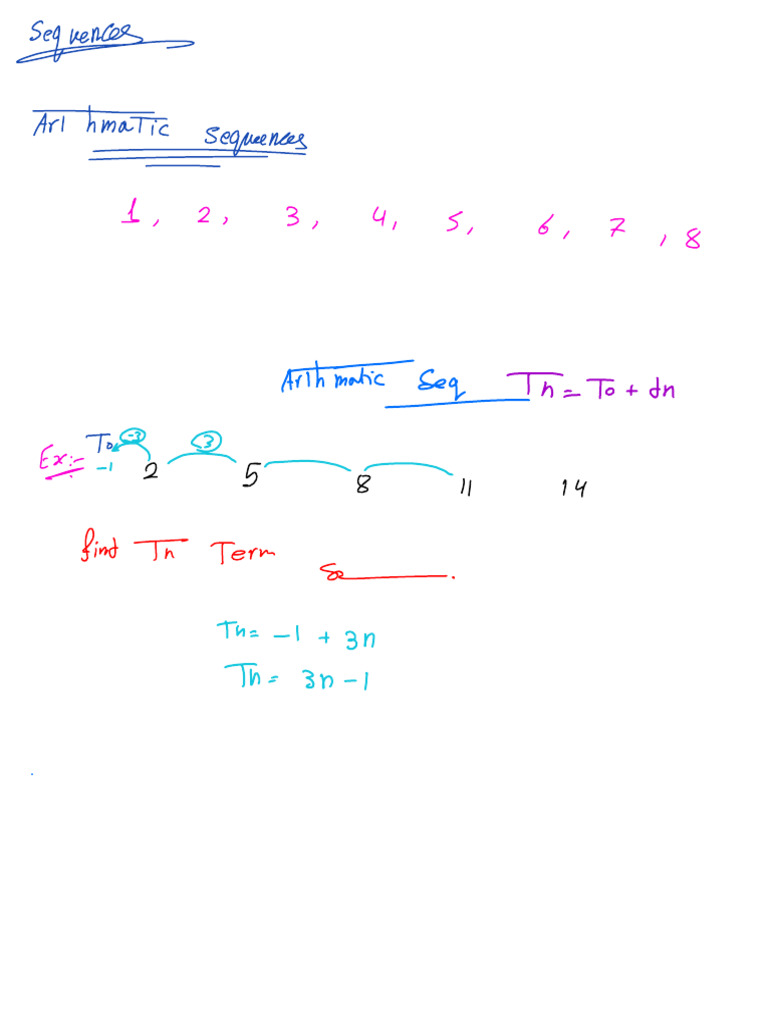 Sequences
Arithmatic Sequences
1, 2, 3, 4, 5, 6, 7, 8
Arithmatic Seq Tn = To + dn
Ex:- To -3 3
-1 2 5 8 11 14
find Tn Term
Tn= -1 + 3n
Tn= 3n - 1